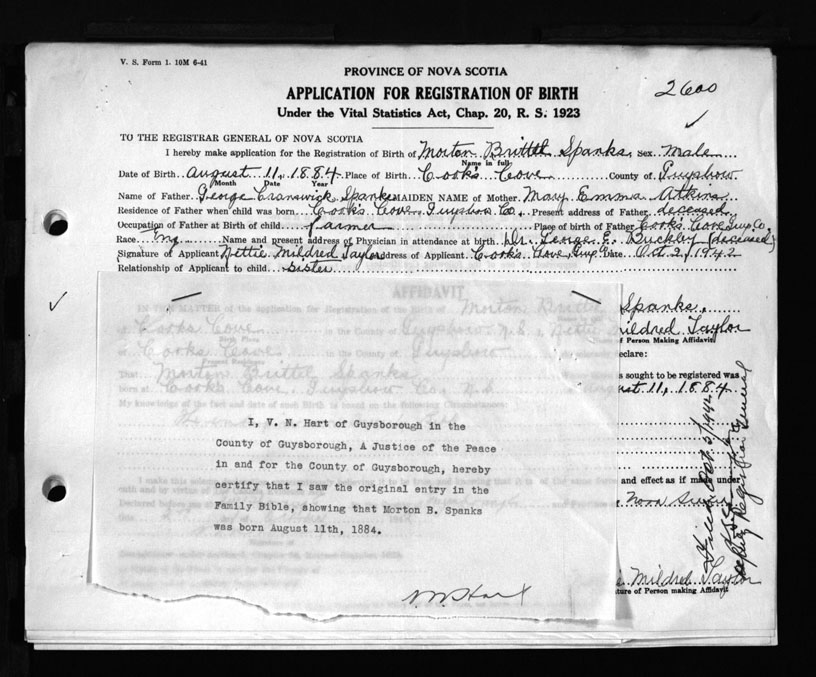 V. S. Form 1. 10M 6-41
PROVINCE OF NOVA SCOTIA
APPLICATION FOR REGISTRATION OF BIRTH
2600
Under the Vital Statistics Act, Chap. 20, R. S. 1923
TO THE REGISTRAR GENERAL OF NOVA SCOTIA
I hereby make application for the Registration of Birth of Morton Brittel Spanks, Sex Male
Name in full
Date of Birth August 11, 1884 Place of Birth Cook's Cove County of Guysboro
Month Date Year
Name of Father George Cranswick Spanks MAIDEN NAME of Mother Mary Emma Atkins
Residence of Father when child was born Cook's Cove Guysboro Co., Present address of Father deceased
Occupation of Father at Birth of child farmer Place of birth of Father Cooks Cove Guy. Co.
Race Eng Name and present address of Physician in attendance at birth Dr. George E. Buckley (deceased)
Signature of Applicant Nettie Mildred Taylor address of Applicant Cook's Cove, Guy. Date Oct 2, 1942
Relationship of Applicant to child sister
AFFIDAVIT
IN THE MATTER of the application for Registration of the Birth of Morton Brittel Spanks,
Cooks Cove in the County of Guysboro N.S. Nettie Mildred Taylor
of Person Making Affidavit
of Cooks Cove in the County of Guysboro declare:
That Morton Brittel Spanks s sought to be registered was
born at Cook's Cove, Guysboro Co. N.S. August 11, 1884
My knowledge of the fact and date of such Birth is based on the following Circumstances:
I, V. N. Hart of Guysborough in the
County of Guysborough, A Justice of the Peace
in and for the County of Guysborough, hereby
certify that I saw the original entry in the
Family Bible, showing that Morton B. Spanks
was born August 11th, 1884.
V. N. Hart
and effect as if made under
Nova Scotia
Mildred Taylor
ture of Person making Affidavit
Filed Oct. 5/1942
Deputy Registrar General